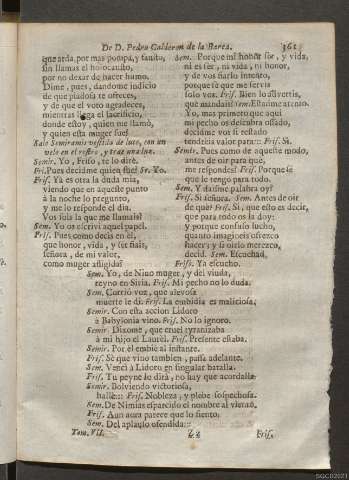 De D. Pedro Calderon de la Barca. 361
que arda por mas pompa, y fausto,
sin llamas el holocausto,
por no dexar de hacer humo.
Dime, pues, dandome indicio
de que piadosa te ofreces,
y de que el voto agradeces,
mientras llega el sacrificio,
donde estoy, quien me llamò,
y quien esta muger fue?
Sale Semiramis vestida de luto, con un
velo en el rostro, y trae una luz.
Semir. Yo, Friso, te lo dirè.
Fri. Pues decidme quien fue? Se. Yo.
Fris. Yà es otra la duda mia,
viendo que en aqueste punto
à la noche lo pregunto,
y me lo responde el dia.
Vos sois la que me llamais?
Sem. Yo os escrivì aquel papel.
Fris. Pues como decis en èl,
que honor, vida, y sér fiais,
señora, de mi valor,
como muger afligida?
Sem. Porque mi honor, sér, y vida,
ni es sér, ni vida, ni honor,
y de vos fiarlo intento,
porque sè que me servis
solo vos. Fris. Bien lo advertis,
què mandais? Sem. Estadme atento.
Yo, mas primero que aqui
mi pecho os descubra ossado,
decidme vos si restado
tendreis valor para:: Fris. Sì.
Semir. Pues como de aquesse modo,
antes de oir para què,
me respondeis? Fris. Porque sè
que le tengo para todo.
Sem. Y daisme palabra oy?
Fris. Sì señora. Sem. Antes de oir
de què? Fris. Sì, que esto es decir,
que para todo os la doy:
y porque confuso lucho,
quanto imagineis ofrezco
hacer; y si oirlo merezco,
decid. Sem. Escuchad,
Friso. Ya escucho.
Sem. Yo, de Nino muger, y del viuda,
reyno en Siria. Fris. Mi pecho no lo duda.
Sem. Corriò voz, que alevosa
muerte le dì. Fris. La embidia es maliciosa.
Semir. Con esta accion Lidoro
à Babylonia vino. Fris. No lo ignoro.
Semir. Dixome, que cruel tyranizaba
à mi hijo el Laurel. Fris. Presente estaba.
Semir. Por èl embiè al instante.
Fris. Sè que vino tambien, passa adelante.
Sem. Vencì à Lidoro en singular batalla.
Fris. Tu peyne lo dirà, no hay que acordalla.
Semir. Bolviendo victoriosa,
hallè::: Fris. Nobleza, y plebe sospechosa.
Sem. De Nimias esparcido el nombre al viento,
Fris. Aun aora parece que lo siento.
Sem. Del aplauso ofendida:::
Tom. VII. Zz Fris.
SGC02021